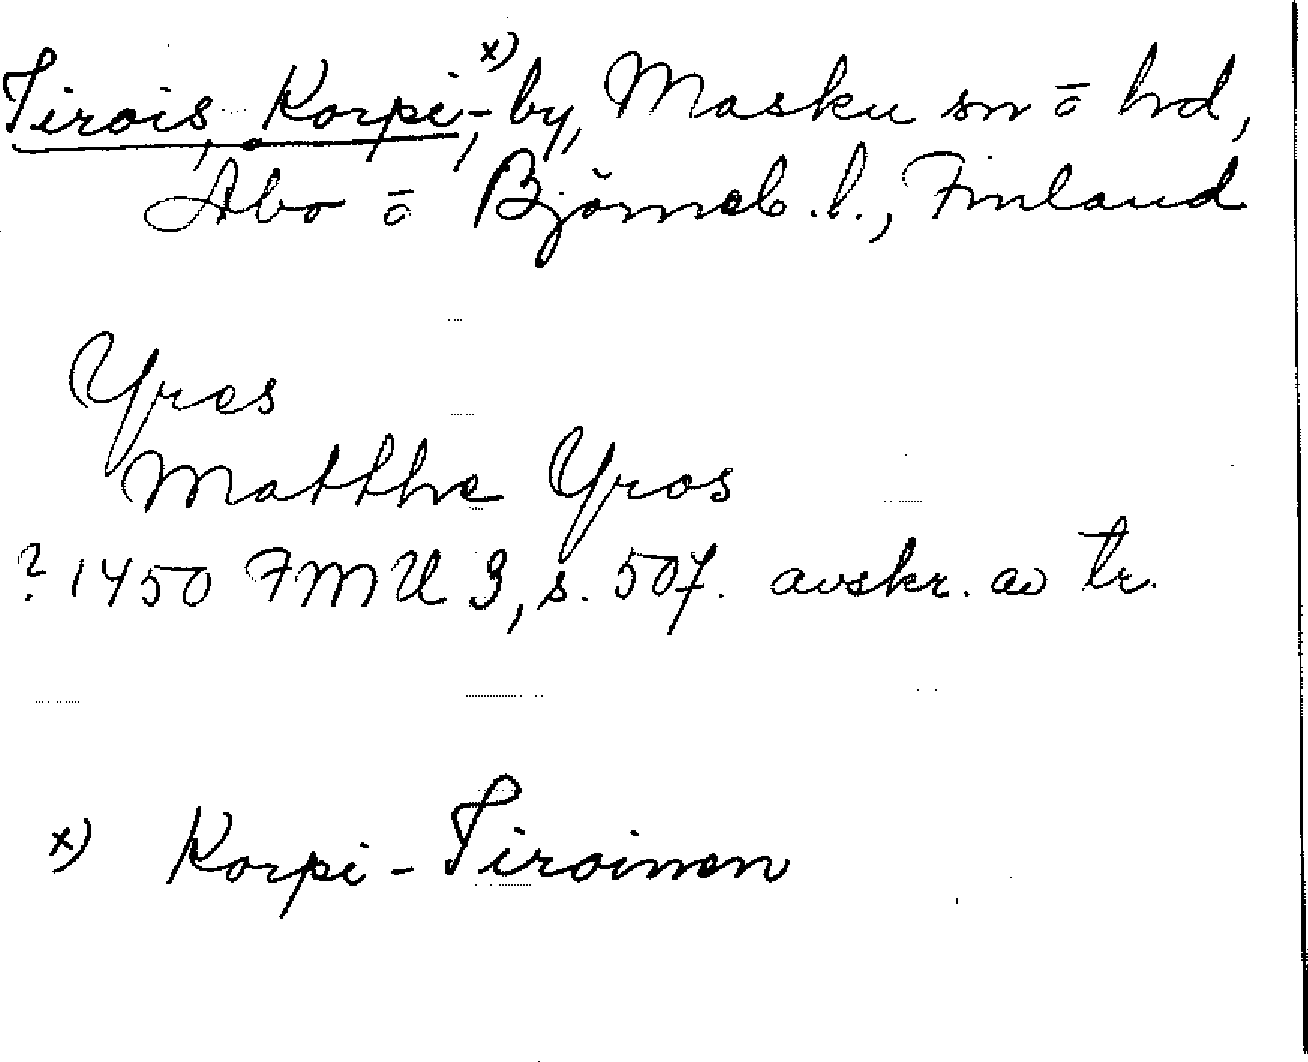 Tirois, Korpi-,x) by, Masku sn o hd,
Åbo o Björneb. l., Finland
Yres
Matthe Yros
? 1450 FMU 3, s. 507. avskr. av tr.
x) Korpi-Tiroinen